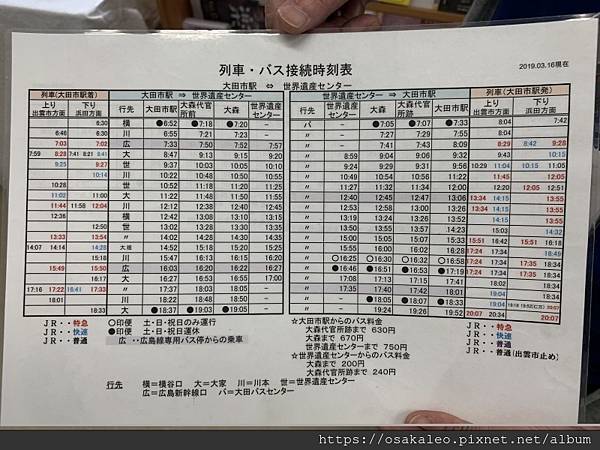 列車・バス接続時刻表
2019.03.16現在
大田市駅 ⇔ 世界遺産センター
列車(大田市駅着) 大田市駅 ⇒ 世界遺産センター 世界遺産センター ⇒ 大田市駅 列車(大田市駅発)
上り 出雲市方面 下り 浜田方面 行先 大田市駅 大森代官所前 大森 世界遺産センター 世界遺産センター 大森 大森代官所跡 大田市駅 上り 出雲市方面 下り 浜田方面
6:30 横 ●6:52 ●7:18 ●7:20 − バ − ●7:05 ●7:07 ●7:33 8:04 7:42
6:46 6:30 川 6:55 7:21 7:23 − 〃 − 7:27 7:29 7:55 8:04
7:03 7:02 広 7:33 7:50 7:52 7:57 〃 − 7:41 7:43 8:09 8:29 8:42 9:28
7:59 8:28 7:41 8:21 8:41 大 8:47 9:13 9:15 9:20 〃 8:59 9:04 9:06 9:32 9:43 10:15
9:25 9:27 世 9:37 10:03 10:05 10:10 〃 9:24 9:29 9:31 9:56 10:29 11:04 10:15 11:05
10:14 川 10:24 10:50 10:55 〃 10:49 10:54 10:56 11:22 11:45 12:05
10:28 世 10:52 11:18 11:20 11:25 〃 11:27 11:32 11:34 12:00 12:20 12:05 12:51
11:02 11:00 大 11:25 11:51 11:53 11:58 〃 12:40 12:45 12:47 13:06 13:34 14:15 13:55
11:44 11:58 12:04 川 12:12 12:38 12:40 12:45 〃 12:53 12:58 13:00 13:26 13:34 14:15 13:55
12:36 横 12:42 13:08 13:10 13:15 〃 13:19 13:24 13:26 13:52 14:15 13:55
世 13:02 13:28 13:30 13:35 〃 13:45 13:50 13:52 14:18 15:32
13:33 13:54 〃 14:02 14:28 14:30 14:35 〃 15:00 15:05 15:07 15:33 15:51 16:42 15:51 16:18
14:07 14:14 14:28 大 14:52 15:18 15:20 15:25 〃 15:55 16:00 16:02 16:28 17:24 18:49
15:18 川 15:28 15:54 15:56 16:01 〃 − ○16:25 ○16:32 ○16:58 17:24 17:35 18:34
15:49 15:50 広 16:03 16:20 16:22 16:27 〃 ●16:46 ●16:51 ●16:53 ●17:19 17:24 17:35 18:34
16:17 大 16:27 16:53 16:55 17:00 〃 17:08 17:13 17:15 17:41 18:34
17:16 17:22 16:41 17:33 〃 17:37 18:03 18:05 − 〃 17:35 17:40 17:42 18:01 19:04 18:34
18:01 川 18:22 18:48 18:50 − 〃 − ●18:05 ●18:07 ●18:33 19:04
18:33 大 ●18:37 ●19:03 ●19:05 − 〃 − 18:49 18:51 19:17 20:07 20:34 20:07
JR・・特急 ○印便 土・日・祝日のみ運行
JR・・快速 ●印便 土・日・祝日運休
JR・・普通 広 ・・広島線専用バス停からの乗車
☆大田市駅からのバス料金
大森代官所跡まで 630円
大森まで 670円
世界遺産センターまで 750円
☆世界遺産センターからのバス料金
大森まで 200円
大森代官所跡まで 240円
JR・・特急
JR・・快速
JR・・普通
JR・・普通(出雲市止め)
行先 横=横谷口 大=大家 川=川本 世=世界遺産センター
広=広島新幹線口 バ=大田バスセンター
https://osakaleo.pixnet.net/album